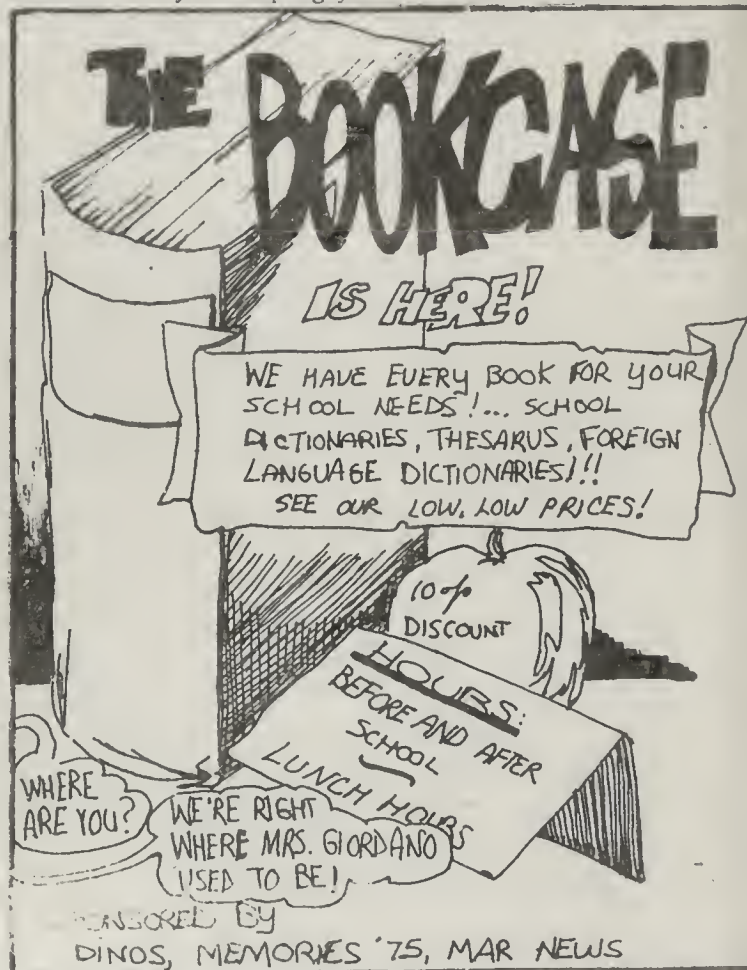 THE BOOKCASE
IS HERE!
WE HAVE EVERY BOOK FOR YOUR
SCHOOL NEEDS!... SCHOOL
DICTIONARIES, THESARUS, FOREIGN
LANGUAGE DICTIONARIES!!!
SEE OUR LOW, LOW PRICES!
10%
DISCOUNT
HOURS:
BEFORE AND AFTER
SCHOOL
LUNCH HOURS
WHERE
ARE YOU?
WE'RE RIGHT
WHERE MRS. GIORDANO
USED TO BE!
SPONSORED BY
DINOS, MEMORIES '75, MAR NEWS